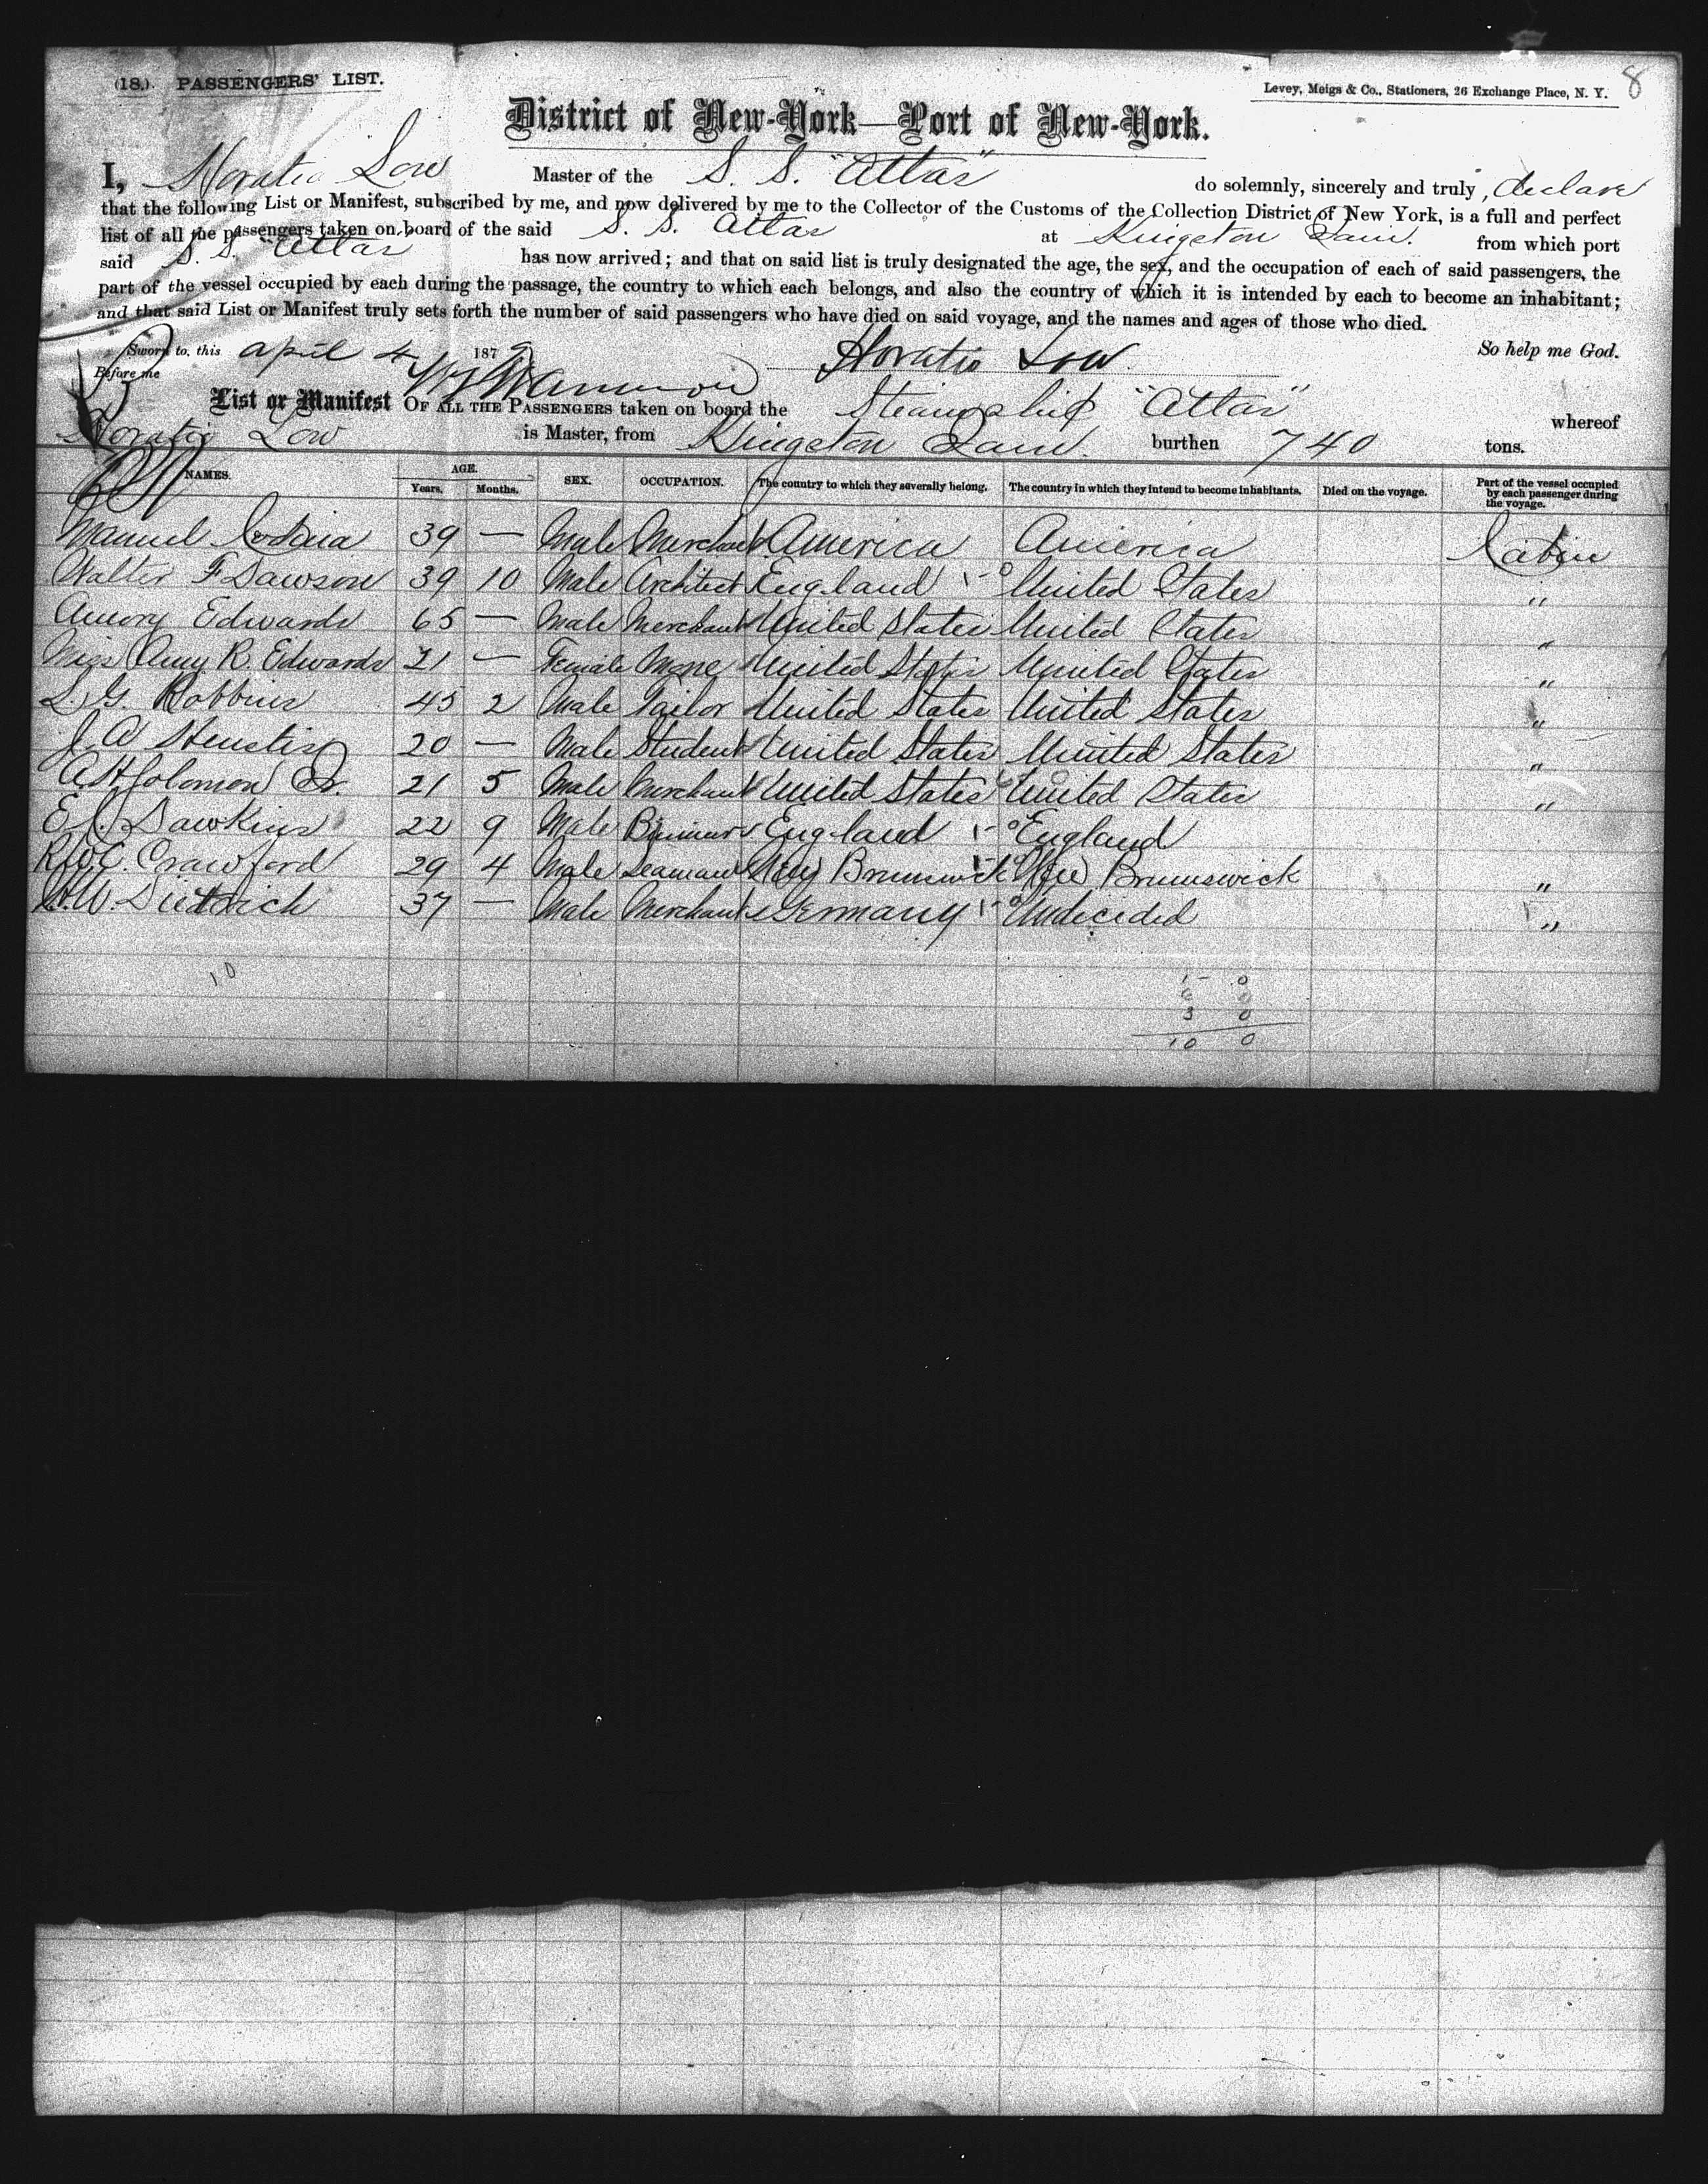 (18.) PASSENGERS' LIST.
Levey, Meigs & Co., Stationers, 26 Exchange Place, N. Y. 8
District of New-York—Port of New-York.
I, Horatio Low Master of the S. S. "Atlas" do solemnly, sincerely and truly, declare
that the following List or Manifest, subscribed by me, and now delivered by me to the Collector of the Customs of the Collection District of New York, is a full and perfect
list of all the passengers taken on board of the said S. S. Atlas at Kingston Jam. from which port
said S. S. "Atlas has now arrived; and that on said list is truly designated the age, the sex, and the occupation of each of said passengers, the
part of the vessel occupied by each during the passage, the country to which each belongs, and also the country of which it is intended by each to become an inhabitant;
and that said List or Manifest truly sets forth the number of said passengers who have died on said voyage, and the names and ages of those who died.
Sworn to, this April 4 187 Horatio Low So help me God.
Before me
List or Manifest OF ALL THE PASSENGERS taken on board the Steamship "Atlas" whereof
Horatio Low is Master, from Kingston Jam. burthen 740 tons.
NAMES. AGE. Years. Months. SEX. OCCUPATION. The country to which they severally belong. The country in which they intend to become inhabitants. Died on the voyage. Part of the vessel occupied by each passenger during the voyage.
Manuel 39 — Male Merchant America America Cabin
Walter F Dawson 39 10 Male Architect England 1-0 United States "
Amory Edwards 65 — Male Merchant United States United States "
Miss Amy R. Edwards 21 — Female None United States United States "
L. G. Robbins 45 2 Male Tailor United States United States "
J. A Heustis 20 — Male Student United States United States "
A H Solomon Jr. 21 5 Male Merchant United States United States "
E Dawkins 22 9 Male England 1-0 England
R. W. C. Crawford 29 4 Male Seaman New Brunswick New Brunswick "
H. W. Dietrich 37 — Male Merchant Germany 1-0 Undecided "
10
1- 0
6 0
3 0
10 0